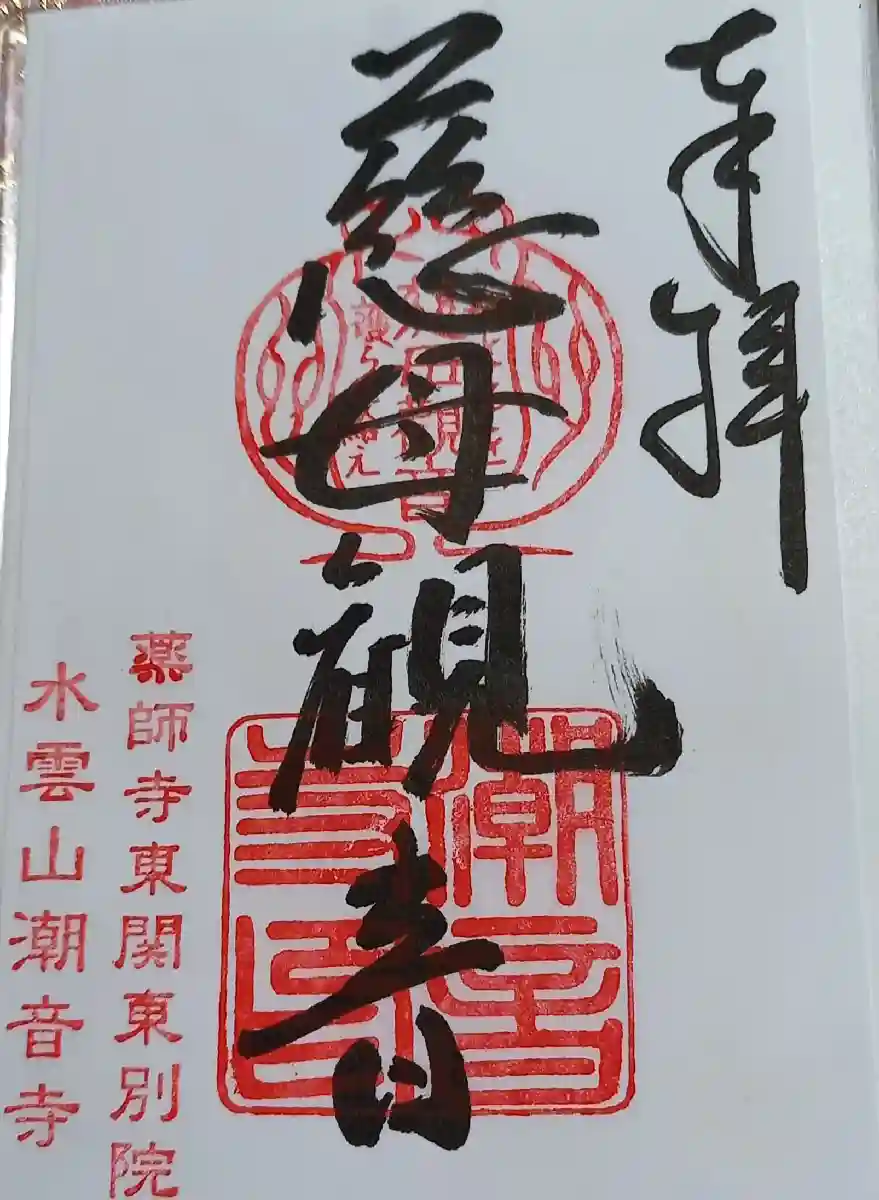 奉拝
慈母観音
潮音
寺印
薬師寺東関東別院
水雲山潮音寺